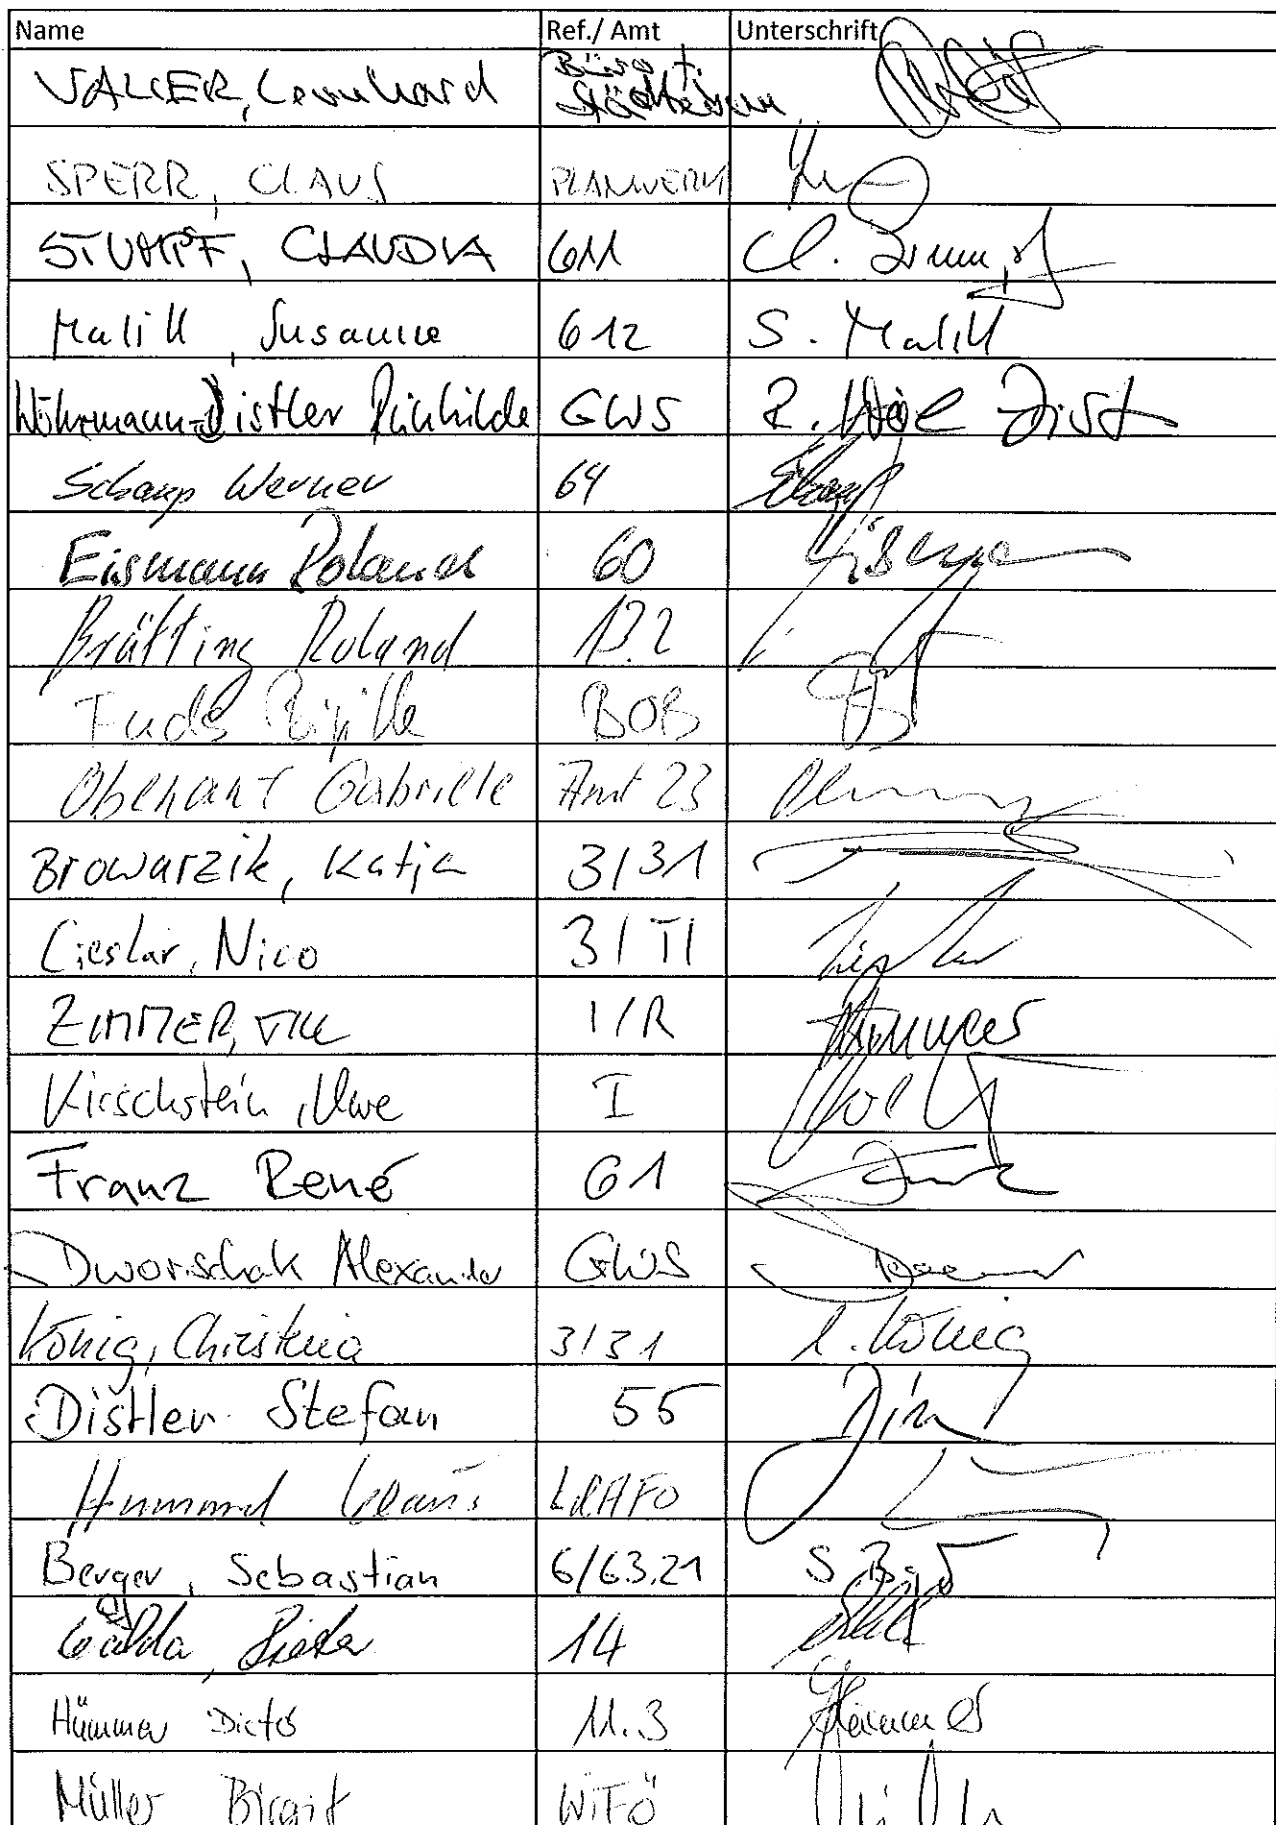 Name Ref./ Amt Unterschrift
VALIER, Leonhard Büro f. Städtebau
SPERR, CLAUS PLANWERK
STUMPF, CLAUDIA 611 Cl. Stumpf
Malik, Susanne 612 S. Malik
Wöhrmann-Distler Richhilde GWS
Scharp Werner 64
Eismann Roland 60
Brütting Roland 13.2
Fuchs Brigitte BOB
Gabriele Amt 23
Browarzik, Katja 3/31
Cieslar, Nico 3/TI
ZIMMER, TILL 1/R Zimmer
Kirschstein, Uwe I
Franz René 61
Dworschak Alexander GWS
König, Christina 3/31 C. König
Distler Stefan 55
Hummel Claus LRAFO
Berger, Sebastian 6/63.21
14
Hümmer Dieter 11.3 Hümmer
Müller Birgit WiFö